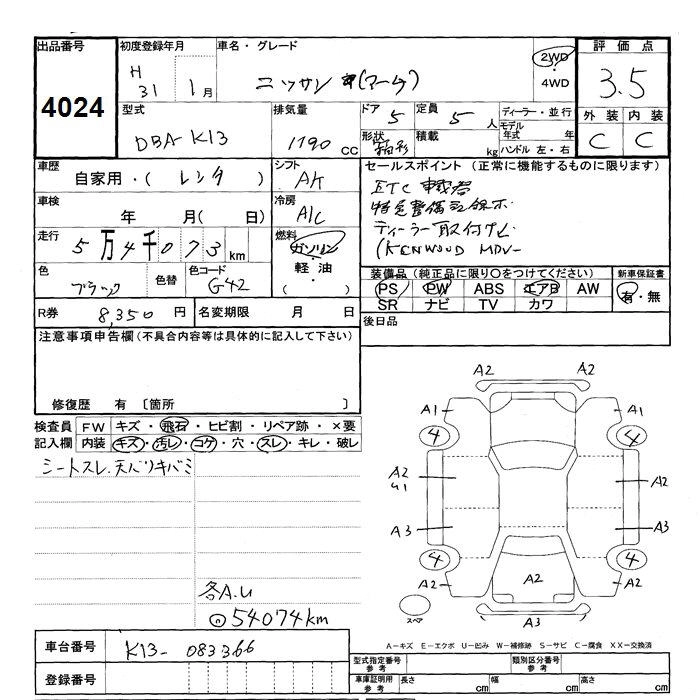 出品番号 初度登録年月 車名・グレード 評価点
4024 H 31 1月 ニッサン (マーチ) 2WD・4WD 3.5
外装 内装
C C
型式 排気量 ドア 定員 ディーラー・並行
DBA-K13 1190 cc 5 5人 モデル年式 年
形状 箱形 積載 kg ハンドル 左・右
車歴 シフト セールスポイント (正常に機能するものに限ります)
自家用・( レンタ ) AT ETC車載器
車検 冷房 特定整備記録
年 月( 日) A/C ディーラー取付ナビ
走行 燃料 (KENWOOD MDV-
5万4千073km ガソリン・軽油・( )
色 色替 色コード 装備品 (純正品に限り○をつけてください) 新車保証書
ブラック G42 PS PW ABS エアB AW 有・無
SR ナビ TV カワ
R券 8,350円 名変期限 月 日 後日品
注意事項申告欄(不具合内容等は具体的に記入して下さい)
修復歴 有 〔箇所 〕
検査員 FW キズ・飛石・ヒビ割・リペア跡・×要
記入欄 内装 キズ・汚レ・コゲ・穴・スレ・キレ・破レ
シートスレ.天バリキバミ
A2 A2
A1 A1
4 4
A2 A2
U1
A3 A3
4 4
A2 A2 A2
スペア A3
各A.U
54074km
A-キズ E-エクボ U-凹み W-補修跡 S-サビ C-腐食 XX-交換済
車台番号 K13-083366
登録番号
型式指定番号 参考 類別区分番号 参考
車庫証明用 参考 長さ cm 幅 cm 高さ cm